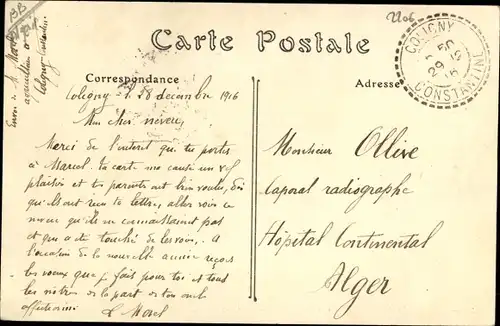 2206
Carte Postale
COLIGNY
29
CONSTANTINE
Correspondance
Adresse
Coligny le 28 décembre 1916
Mon cher neveu,
Merci de l'interet que tu portes
à Marcel. Ta carte me cause un vif
plaisir et tes parents ont bien voulu, dès
qu'ils ont reçu ta lettre, aller voir ce
neveu qu'ils ne connaissaient pas
et qui a été touché de les voir. A
l'occasion de la nouvelle année reçois
les voeux que je fais pour toi et tous
les nôtres de la part de ton oncle
affectionné
Morel
Monsieur Ollive
Caporal radiographe
Hôpital Continental
Alger